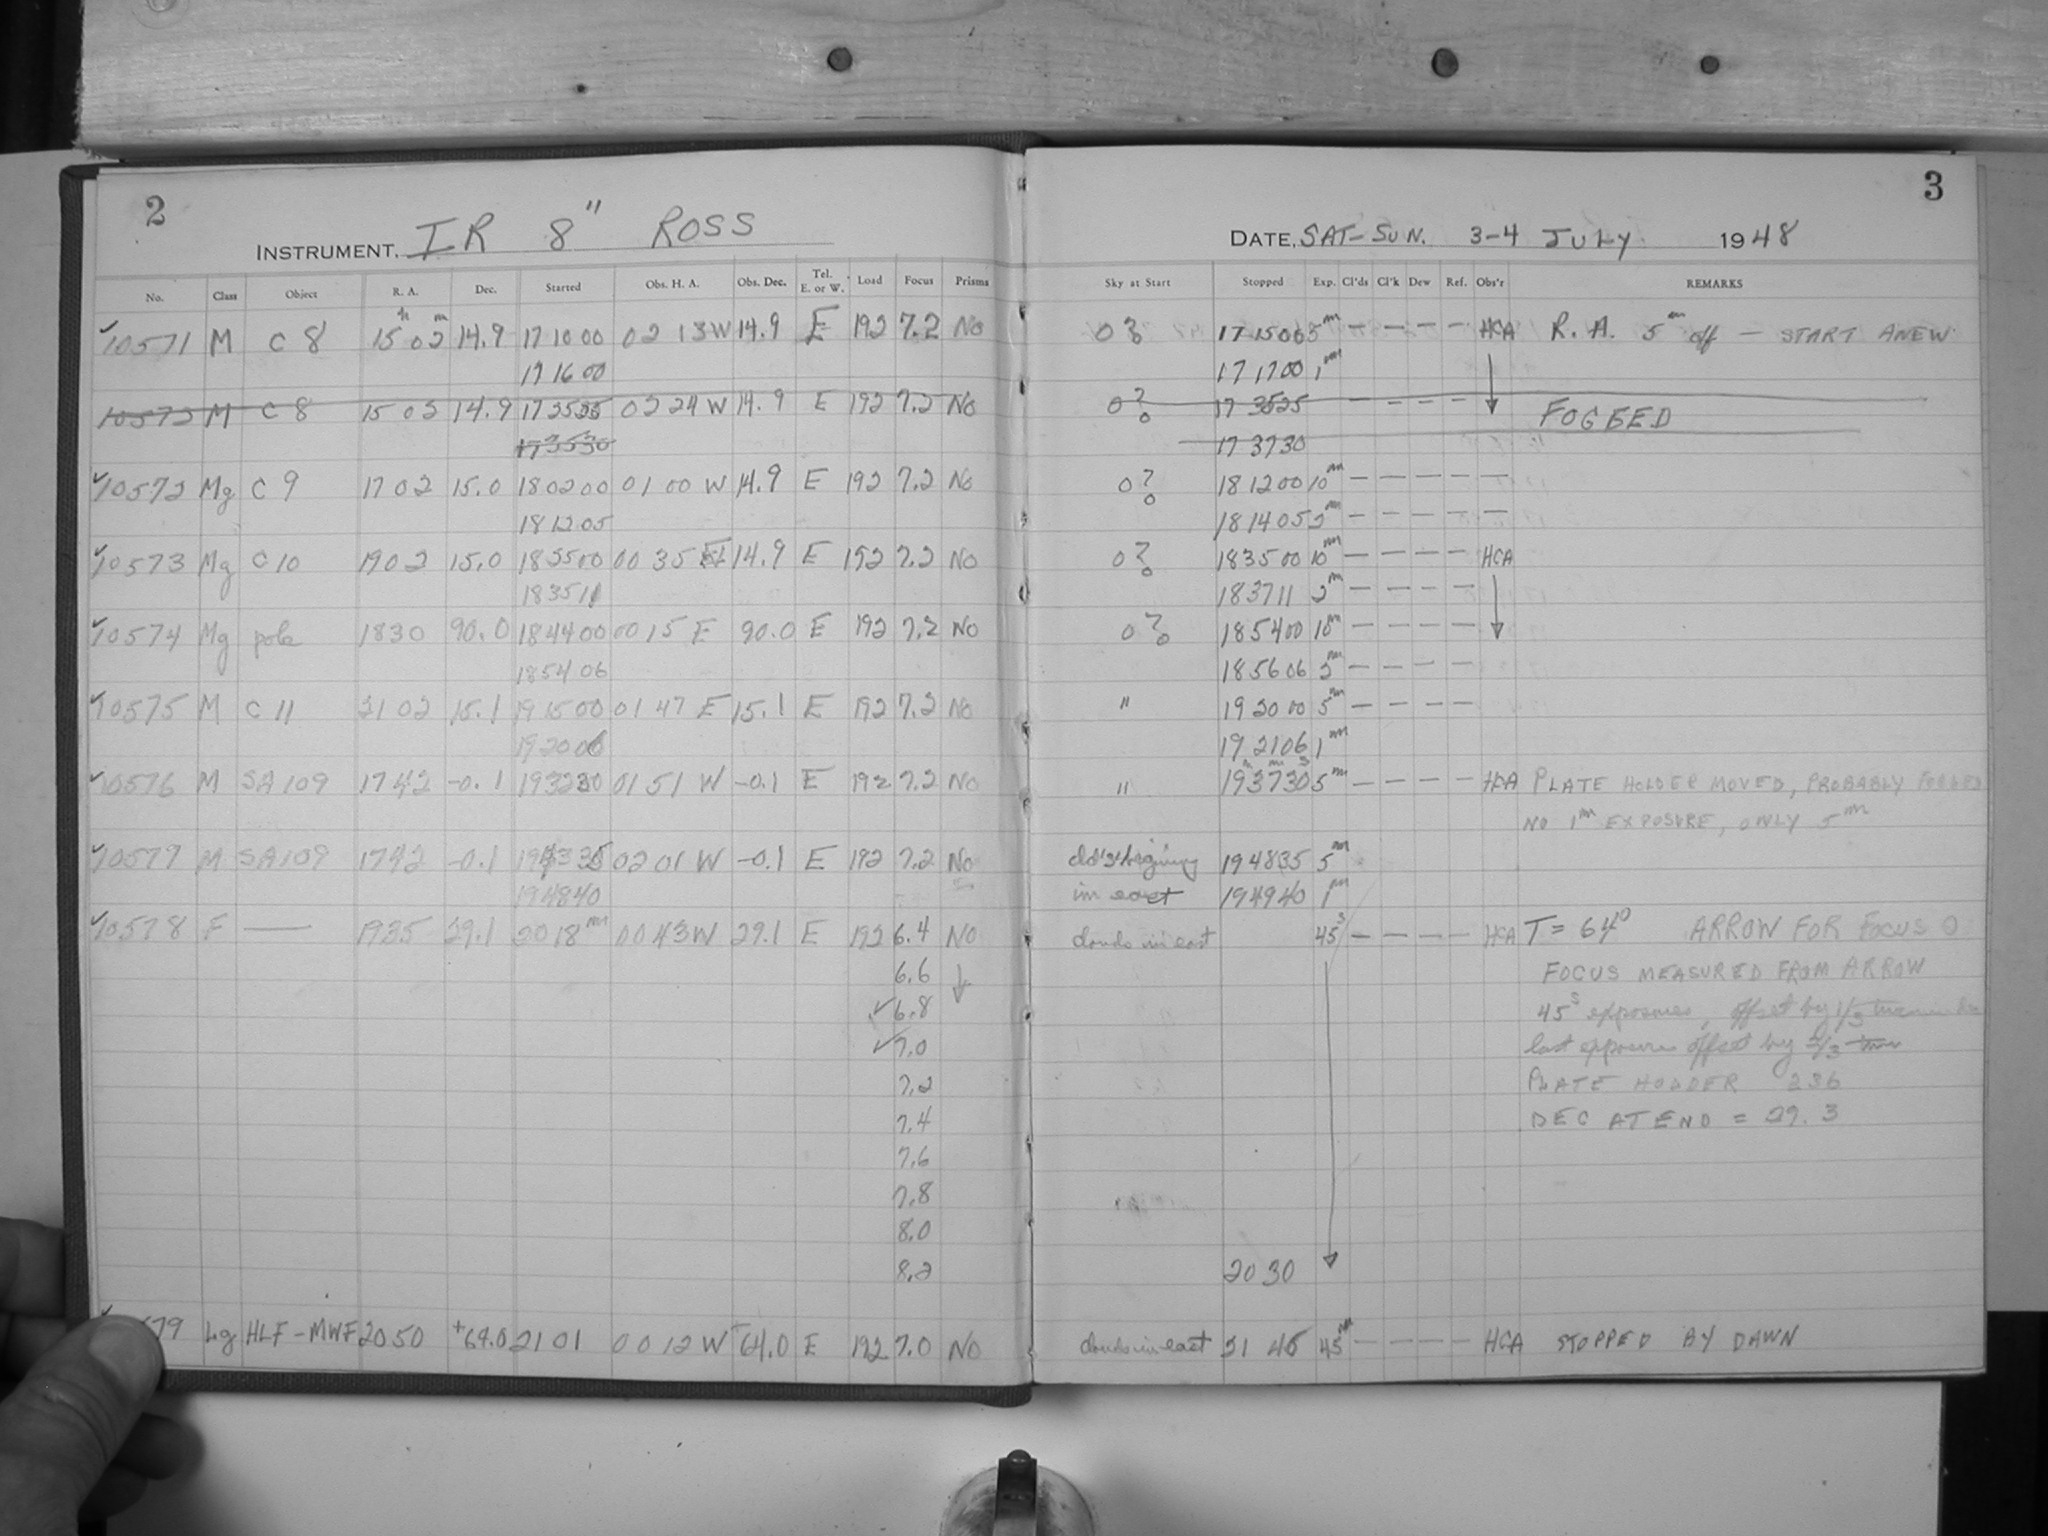 2
INSTRUMENT. IR 8" ROSS
No. Class Object R. A. Dec. Started Obs. H. A. Obs. Dec. Tel. E. or W. Load Focus Prisms
✓10571 M C 8 15h 02m 14.9 17 10 00 02 13 W 14.9 E 192 7.2 No
17 16 00
10572 M C 8 15 02 14.9 02 24 W 14.9 E 192 7.2 No
✓10572 Mg C 9 17 02 15.0 18 02 00 01 00 W 14.9 E 192 7.2 No
18 12 05
✓10573 Mg C 10 19 02 15.0 00 35 14.9 E 192 7.2 No
18 35 11
✓10574 Mg pole 18 30 90.0 18 44 00 00 15 E 90.0 E 192 7.2 No
18 54 06
✓10575 M C 11 21 02 15.1 19 15 00 01 47 E 15.1 E 192 7.2 No
19 20 06
✓10576 M SA 109 17 42 -0.1 19 32 30 01 51 W -0.1 E 192 7.2 No
✓10577 M SA 109 17 42 -0.1 02 01 W -0.1 E 192 7.2 No
19 48 40
✓10578 F — 19 35 29.1 20 18m 00 43 W 29.1 E 192 6.4 No
6.6
✓6.8
✓7.0
7.2
7.4
7.6
7.8
8.0
8.2
79 Lg HLF-MWF 20 50 +64.0 21 01 00 12 W +64.0 E 192 7.0 No
3
DATE, SAT-SUN. 3-4 JULY 1948
Sky at Start Stopped Exp. Cl'ds Cl'k Dew Ref. Obs'r REMARKS
0? 17 15 00 5m — — — — HCA R. A. 5m off — START ANEW
17 17 00 1m
0? 17 35 25 — — — FOGGED
17 37 30
0? 18 12 00 10m — — — — —
18 14 05 2m — — — — —
0? 18 35 00 10m — — — — HCA
18 37 11 2m — — — —
0? 18 54 00 10m — — — —
18 56 06 2m — — — —
" 19 20 00 5m — — — —
19 21 06 1m
" 19 37 30 5m — — — — HCA PLATE HOLDER MOVED, PROBABLY FOGGED
NO 1m EXPOSURE, ONLY 5m
19 48 35 5m
in east 19 49 40 1m
clouds in east 45s — — — — HCA T = 64° ARROW FOR FOCUS 0
FOCUS MEASURED FROM ARROW
45s exposures, offset by 1/3
last exposure offset by 2/3
PLATE HOLDER 236
DEC AT END = 29.3
20 30
clouds in east 21 46 45m — — — — HCA STOPPED BY DAWN